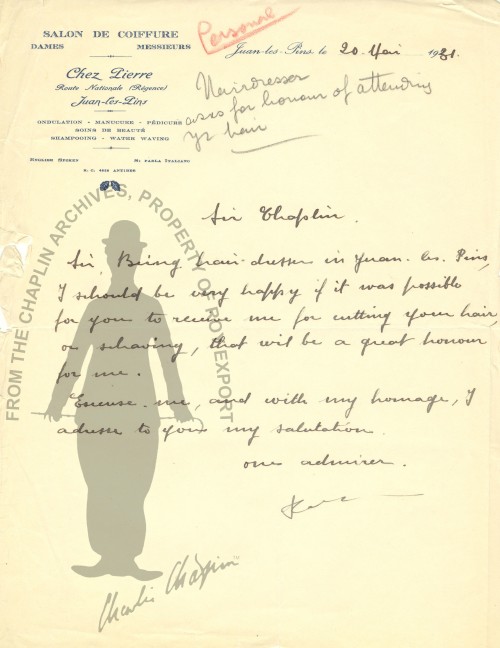 SALON DE COIFFURE
DAMES MESSIEURS
Chez Pierre
Route Nationale (Régence)
Juan-les-Pins
ONDULATION - MANUCURE - PÉDICURE
SOINS DE BEAUTÉ
SHAMPOOING - WATER WAVING
ENGLISH SPOKEN SI PARLA ITALIANO
R. C. 4925 ANTIBES
Personal
Juan-les-Pins, le 20 Mai 1931.
Hairdresser
asks for honour of attending
yr hair
Sir Chaplin.
Sir, Being hair-dresser in Juan-les-Pins,
I should be very happy if it was possible
for you to receive me for cutting your hair
or schaving, that wil be a great honour
for me.
Excuse-me, and with my homage, I
adresse to you my salutation.
one admirer.
FROM THE CHAPLIN ARCHIVES, PROPERTY OF ROY EXPORT
Charlie Chaplin